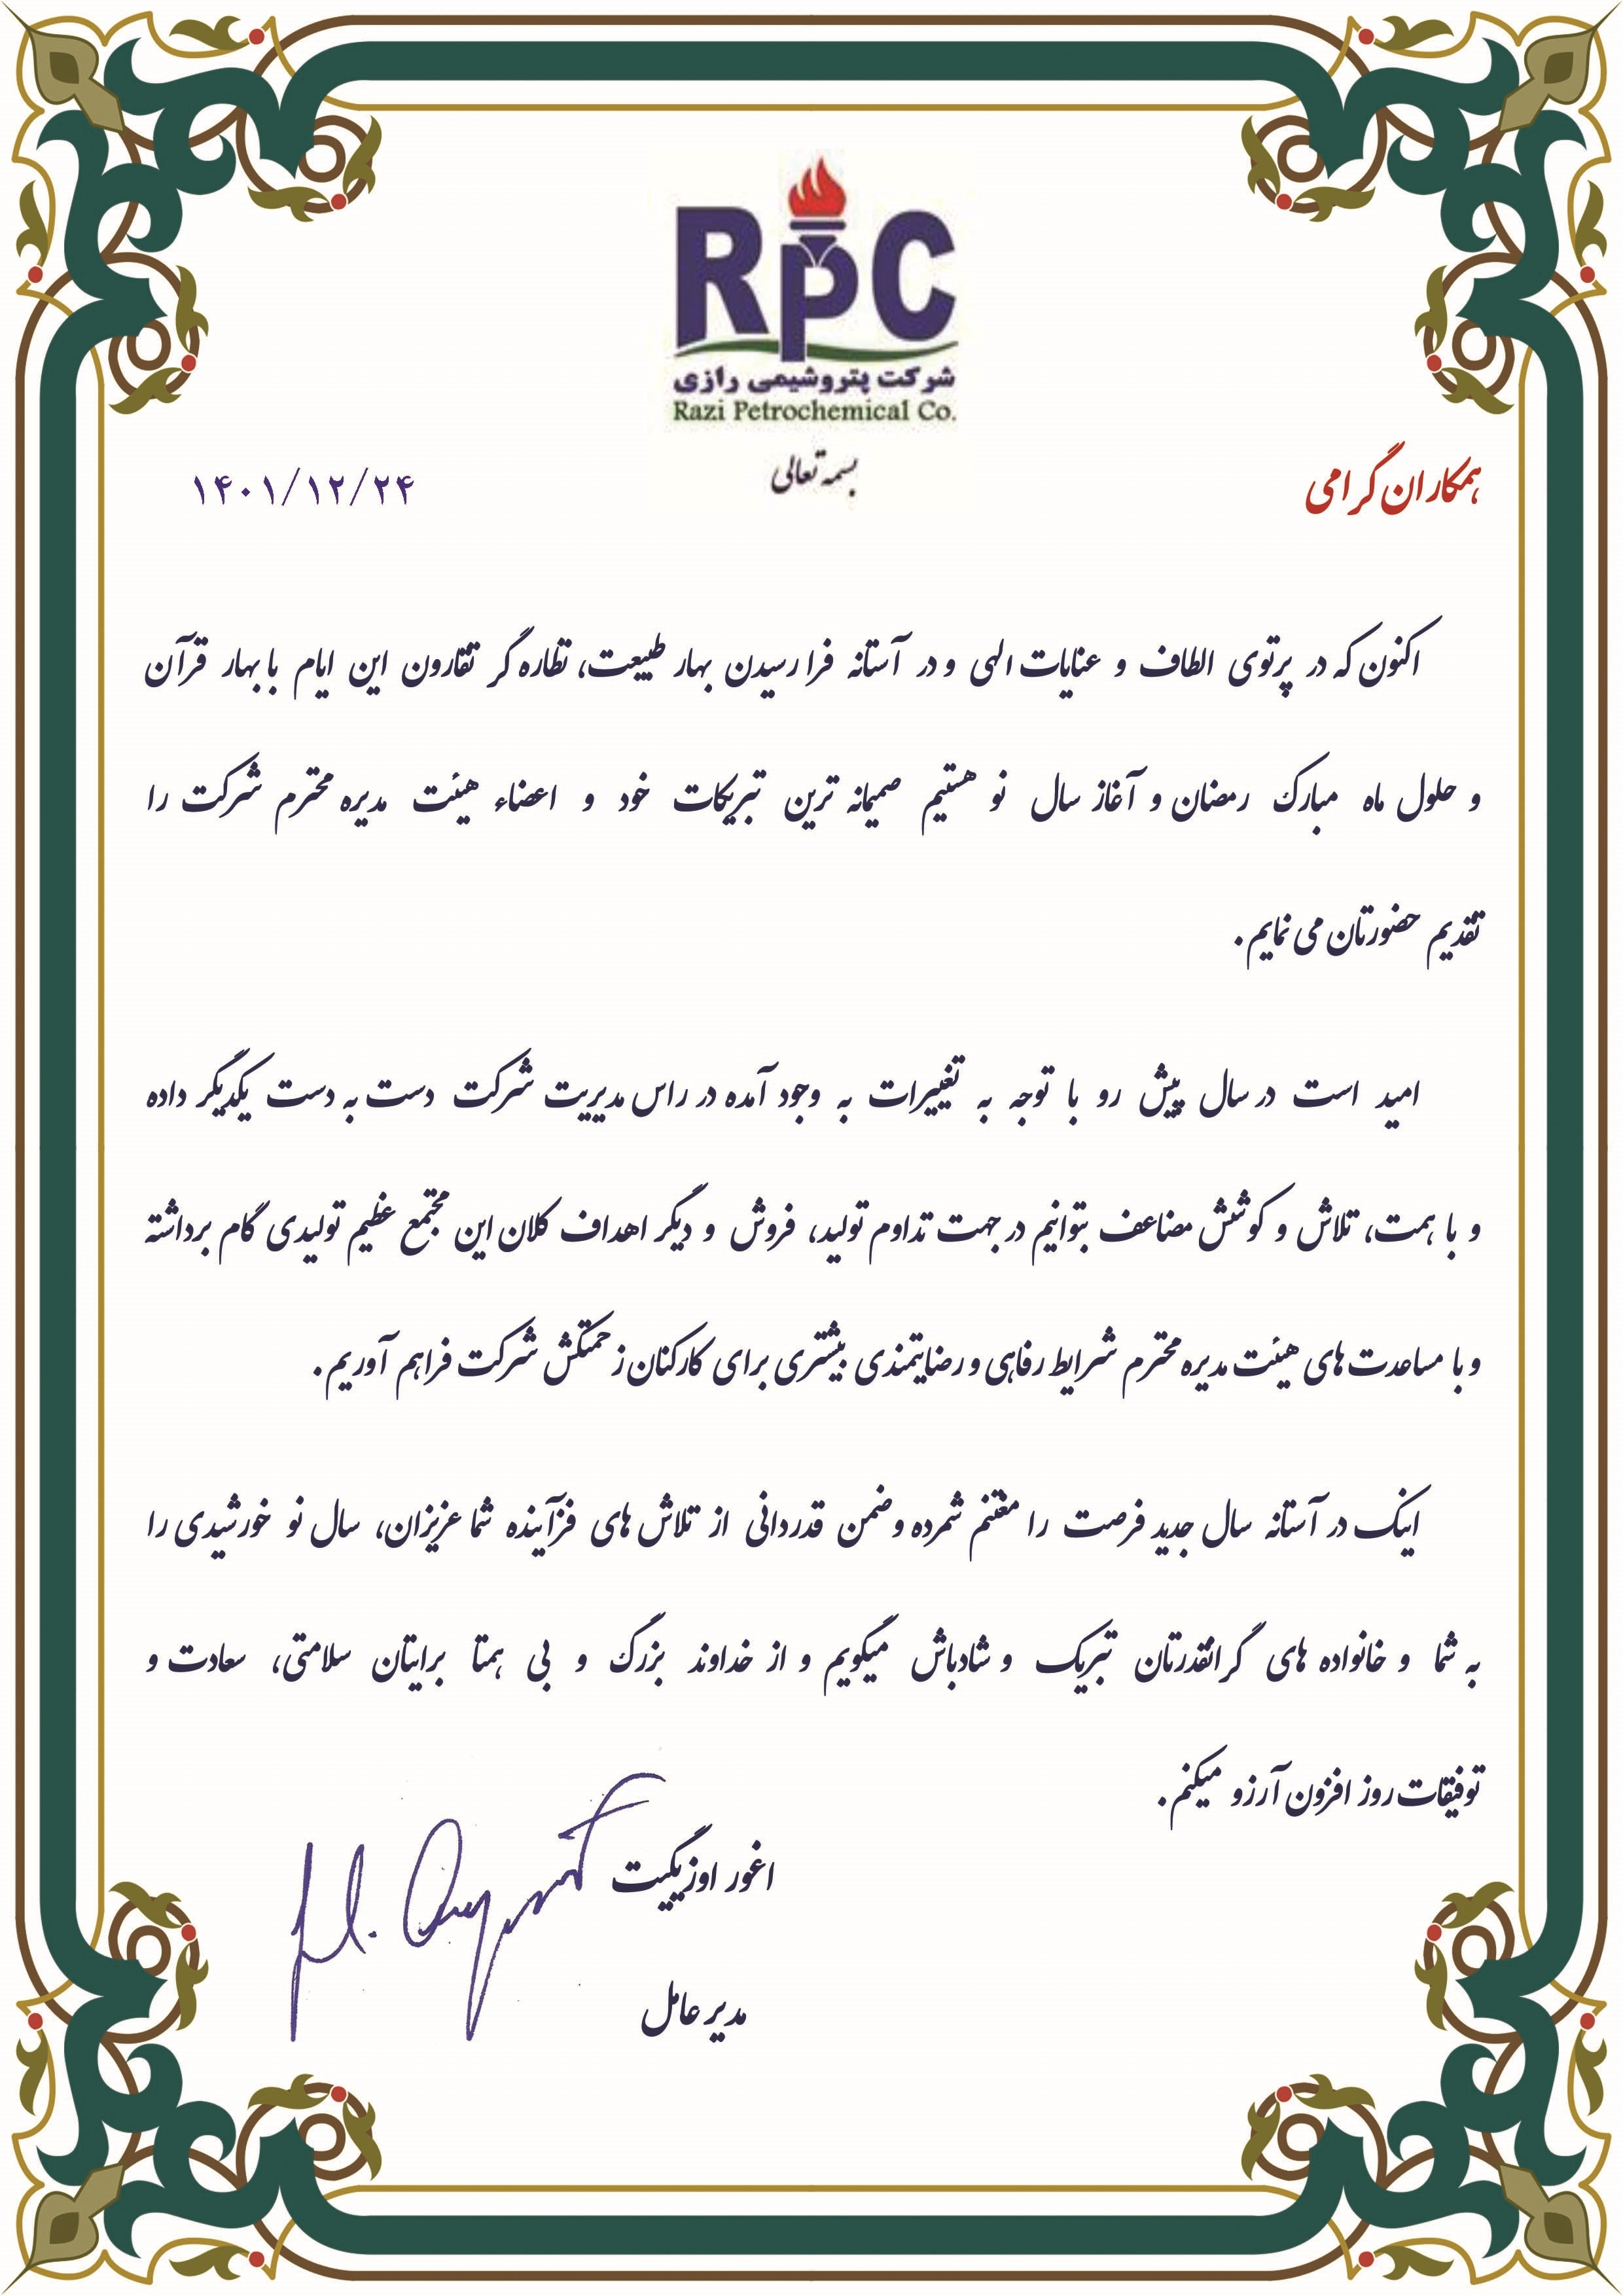 RPC
شرکت پتروشیمی رازی
Razi Petrochemical Co.
بسمه تعالی
همکاران گرامی
۱۴۰۱/۱۲/۲۴
اکنون که در پرتوی الطاف و عنایات الهی و در آستانه فرا رسیدن بهار طبیعت، نظاره گر تقارون این ایام با بهار قرآن
و حلول ماه مبارک رمضان و آغاز سال نو هستیم صمیمانه ترین تبریکات خود و اعضاء هیئت مدیره محترم شرکت را
تقدیم حضورتان می نمایم.
امید است در سال پیش رو با توجه به تغییرات به وجود آمده در راس مدیریت شرکت دست به دست یکدیگر داده
و با همت، تلاش و کوشش مضاعف بتوانیم در جهت تداوم تولید، فروش و دیگر اهداف کلان این مجتمع عظیم تولیدی گام برداشته
و با مساعدت های هیئت مدیره محترم شرایط رفاهی و رضایتمندی بیشتری برای کارکنان زحمتکش شرکت فراهم آوریم.
اینک در آستانه سال جدید فرصت را مغتنم شمرده و ضمن قدردانی از تلاش های فزآینده شما عزیزان، سال نو خورشیدی را
به شما و خانواده های گرانقدرتان تبریک و شادباش میگویم و از خداوند بزرگ و بی همتا برایتان سلامتی، سعادت و
توفیقات روز افزون آرزو میکنم.
اغور اوزیگیت
مدیر عامل